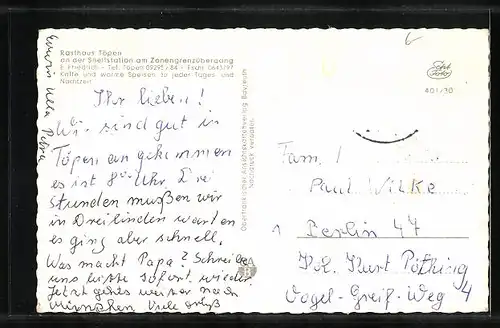 Rasthaus Töpen
an der Shellstation am Zonengrenzübergang
E. Friedrich - Tel. Töpen 09295/84 - Fschr. 0643797
Kalte und warme Speisen zu jeder Tages- und
Nachtzeit
Ihr lieben!
Wir sind gut in
Töpen angekommen
es ist 8 Uhr Drei
Stunden mußen wir
in Dreilinden warten
es ging aber schnell.
Was macht Papa? Schreibe
uns bitte sofort wieder.
Jetzt gehts weiter nach
München Viele Grüß
Ulla Petra
Oberfränkischer Ansichtskartenverlag Bayreuth
Nachdruck verboten
401/30
Fam.
Paul Wilke
1 Berlin 47
Kol. Kurt Pöthing
Vogel-Greif-Weg 4